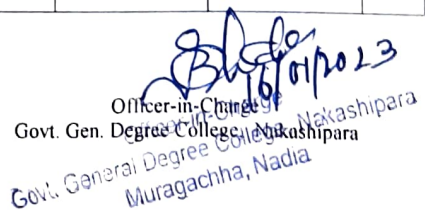 16/01/2023
Officer-in-Charge
Govt. Gen. Degree College, Nakashipara
Officer-in-Charge
Govt. General Degree College, Nakashipara
Muragachha, Nadia